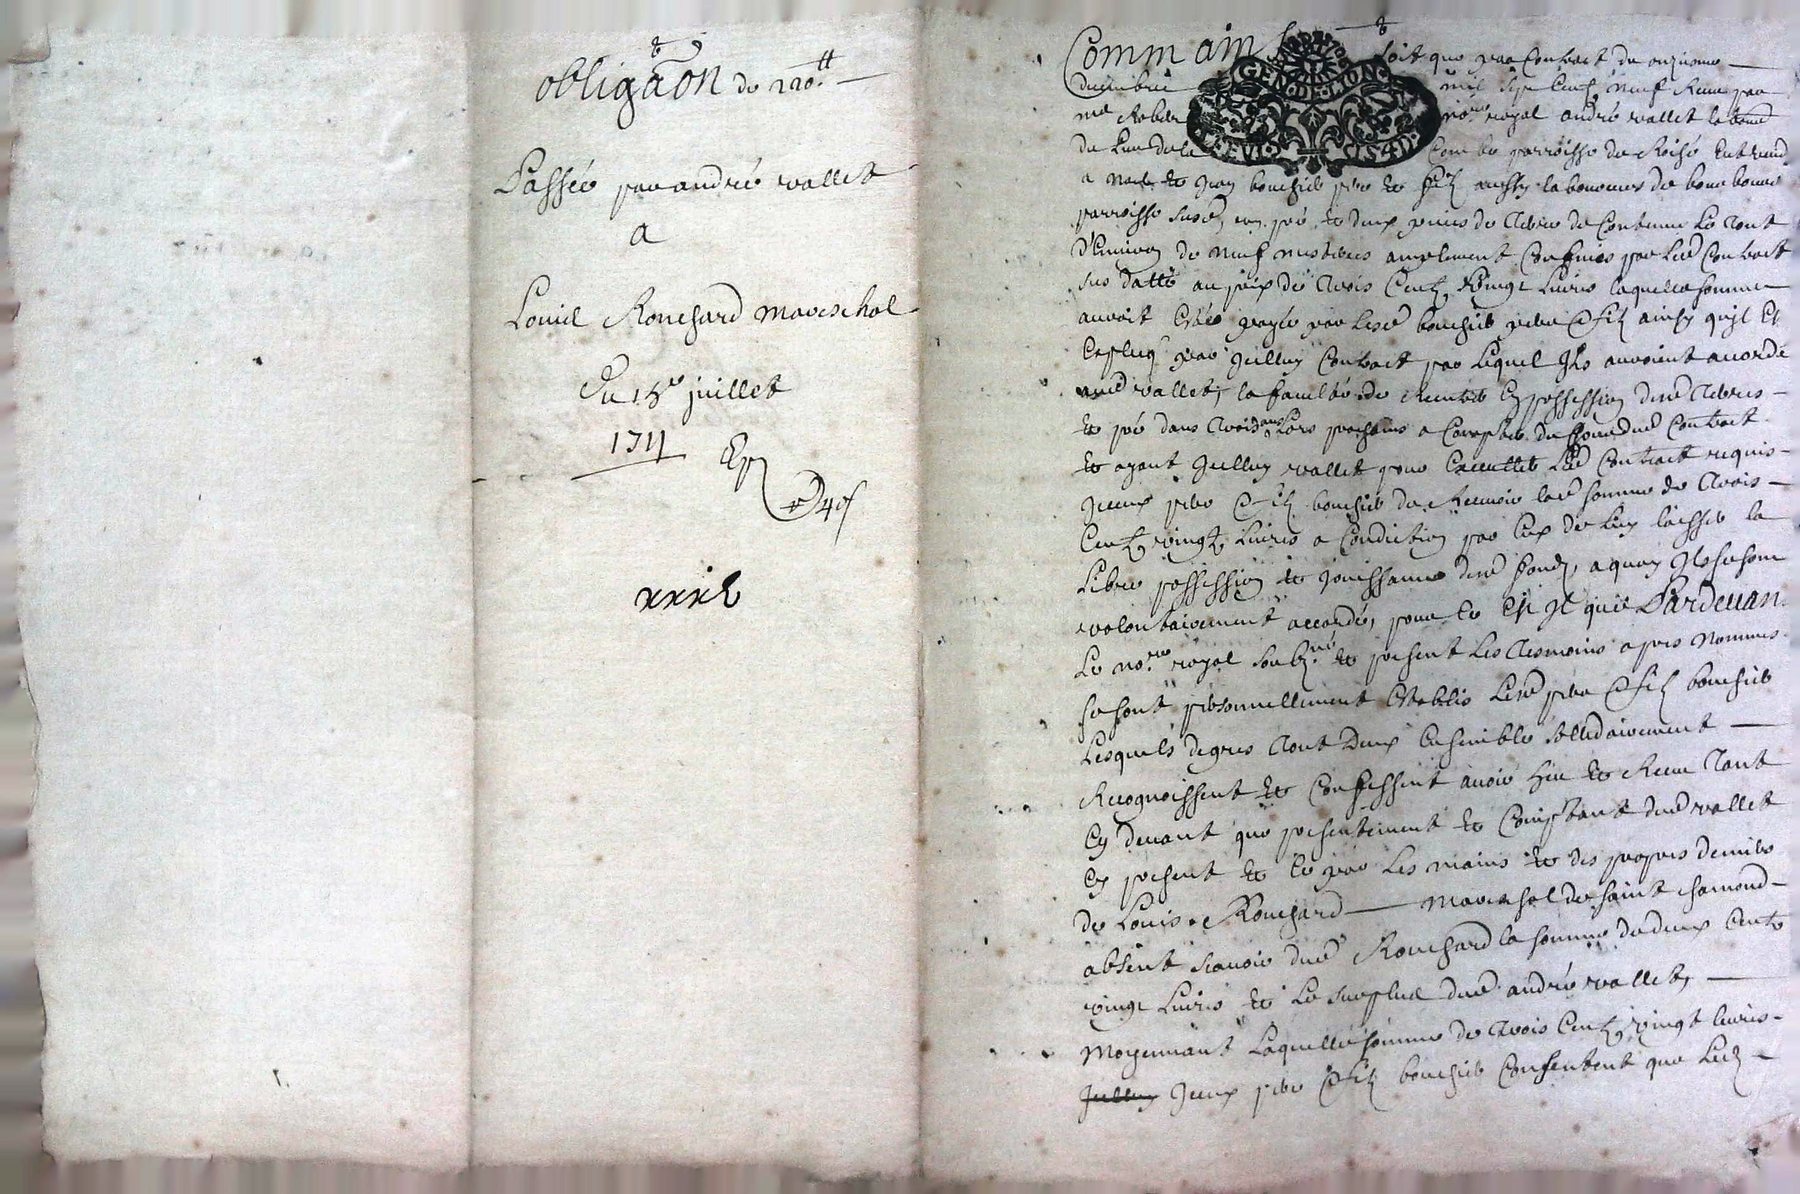 obligãon de 220.tt
Passée par andré vallet
a
Louis Rouchard mareschal
Du 15e juillet
1711
Ep
xxxxL
Comm ainsy soit que par Contract du onzieme
decembre mil Sept Cent neuf Receu par
me Rober no.re royal andré vallet lab
du Lieu de la Combe parroisse de Roisé eut vend
a noel et Jean bouchet pere et filz aussy laboureurs de
parroisse susd, un pré et deux pieces de terre de Contenue Le tout
D'Environ de neuf mestiers amplement Confinés par Led Contract
sus datté au prix de trois Cent vingt Livres laquelle somme
auroit Estée payée par Lesd bouchet pere & filz ainsy quil Est
Expliqé par Jcelluy Contract par Lequel Jls auroient accordé
aud vallet, la faculté de Rentrer En possession desd terres
et pré dans trois ans Lors prochains a Compter du jour dud Contract
et ayant Jcelluy vallet pour Executter Led Contract requis
Jceux pere & filz bouchet de Recevoir lad somme de trois
Cent vingt Livres a Condiction par Eux de Luy laisser la
Libre possession et jouissance desd fondz, a quoy Jls se sont
volontairement accordés, pour ce Est Jl que Pardeuan
Le no.re royal soubz.né et present Les tesmoins apres Nommés
se sont personnellement Establis Lesd pere & filz bouchet
Lesquels de gres tout Deux Ensemble sollidairement
Recognoissent et Confessent avoir heu et Receu tant
Cy devant que presentement et Comptant dud vallet
Cy present et Ce par Les mains et des propres deniers
de Louis Rouchard mareschal de saint chamond
absent scavoir dud Rouchard la somme de deux Cents
vingt Livres et Le surplus dud andré vallet,
moyennant Laquelle somme de trois Cent vingt livres
Jcelluy Jceux pere & filz bouchet Consentent que Led
GEN DE LION